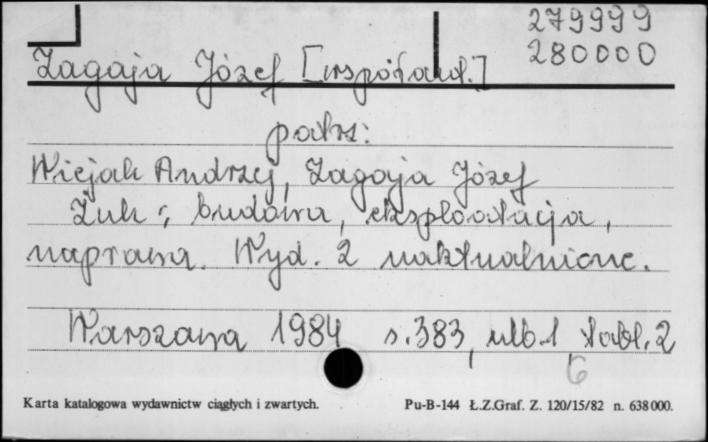 279999
280000
Zagaja Józef [współaut.]
patrz:
Wiejak Andrzej, Zagaja Józef
Żuk : budowa, eksploatacja,
naprawa. Wyd. 2 uaktualnione.
Warszawa 1984 s. 383, nlb. 1, tabl. 2
6
Karta katalogowa wydawnictw ciągłych i zwartych. Pu-B-144 Ł.Z.Graf. Z. 120/15/82 n. 638000.